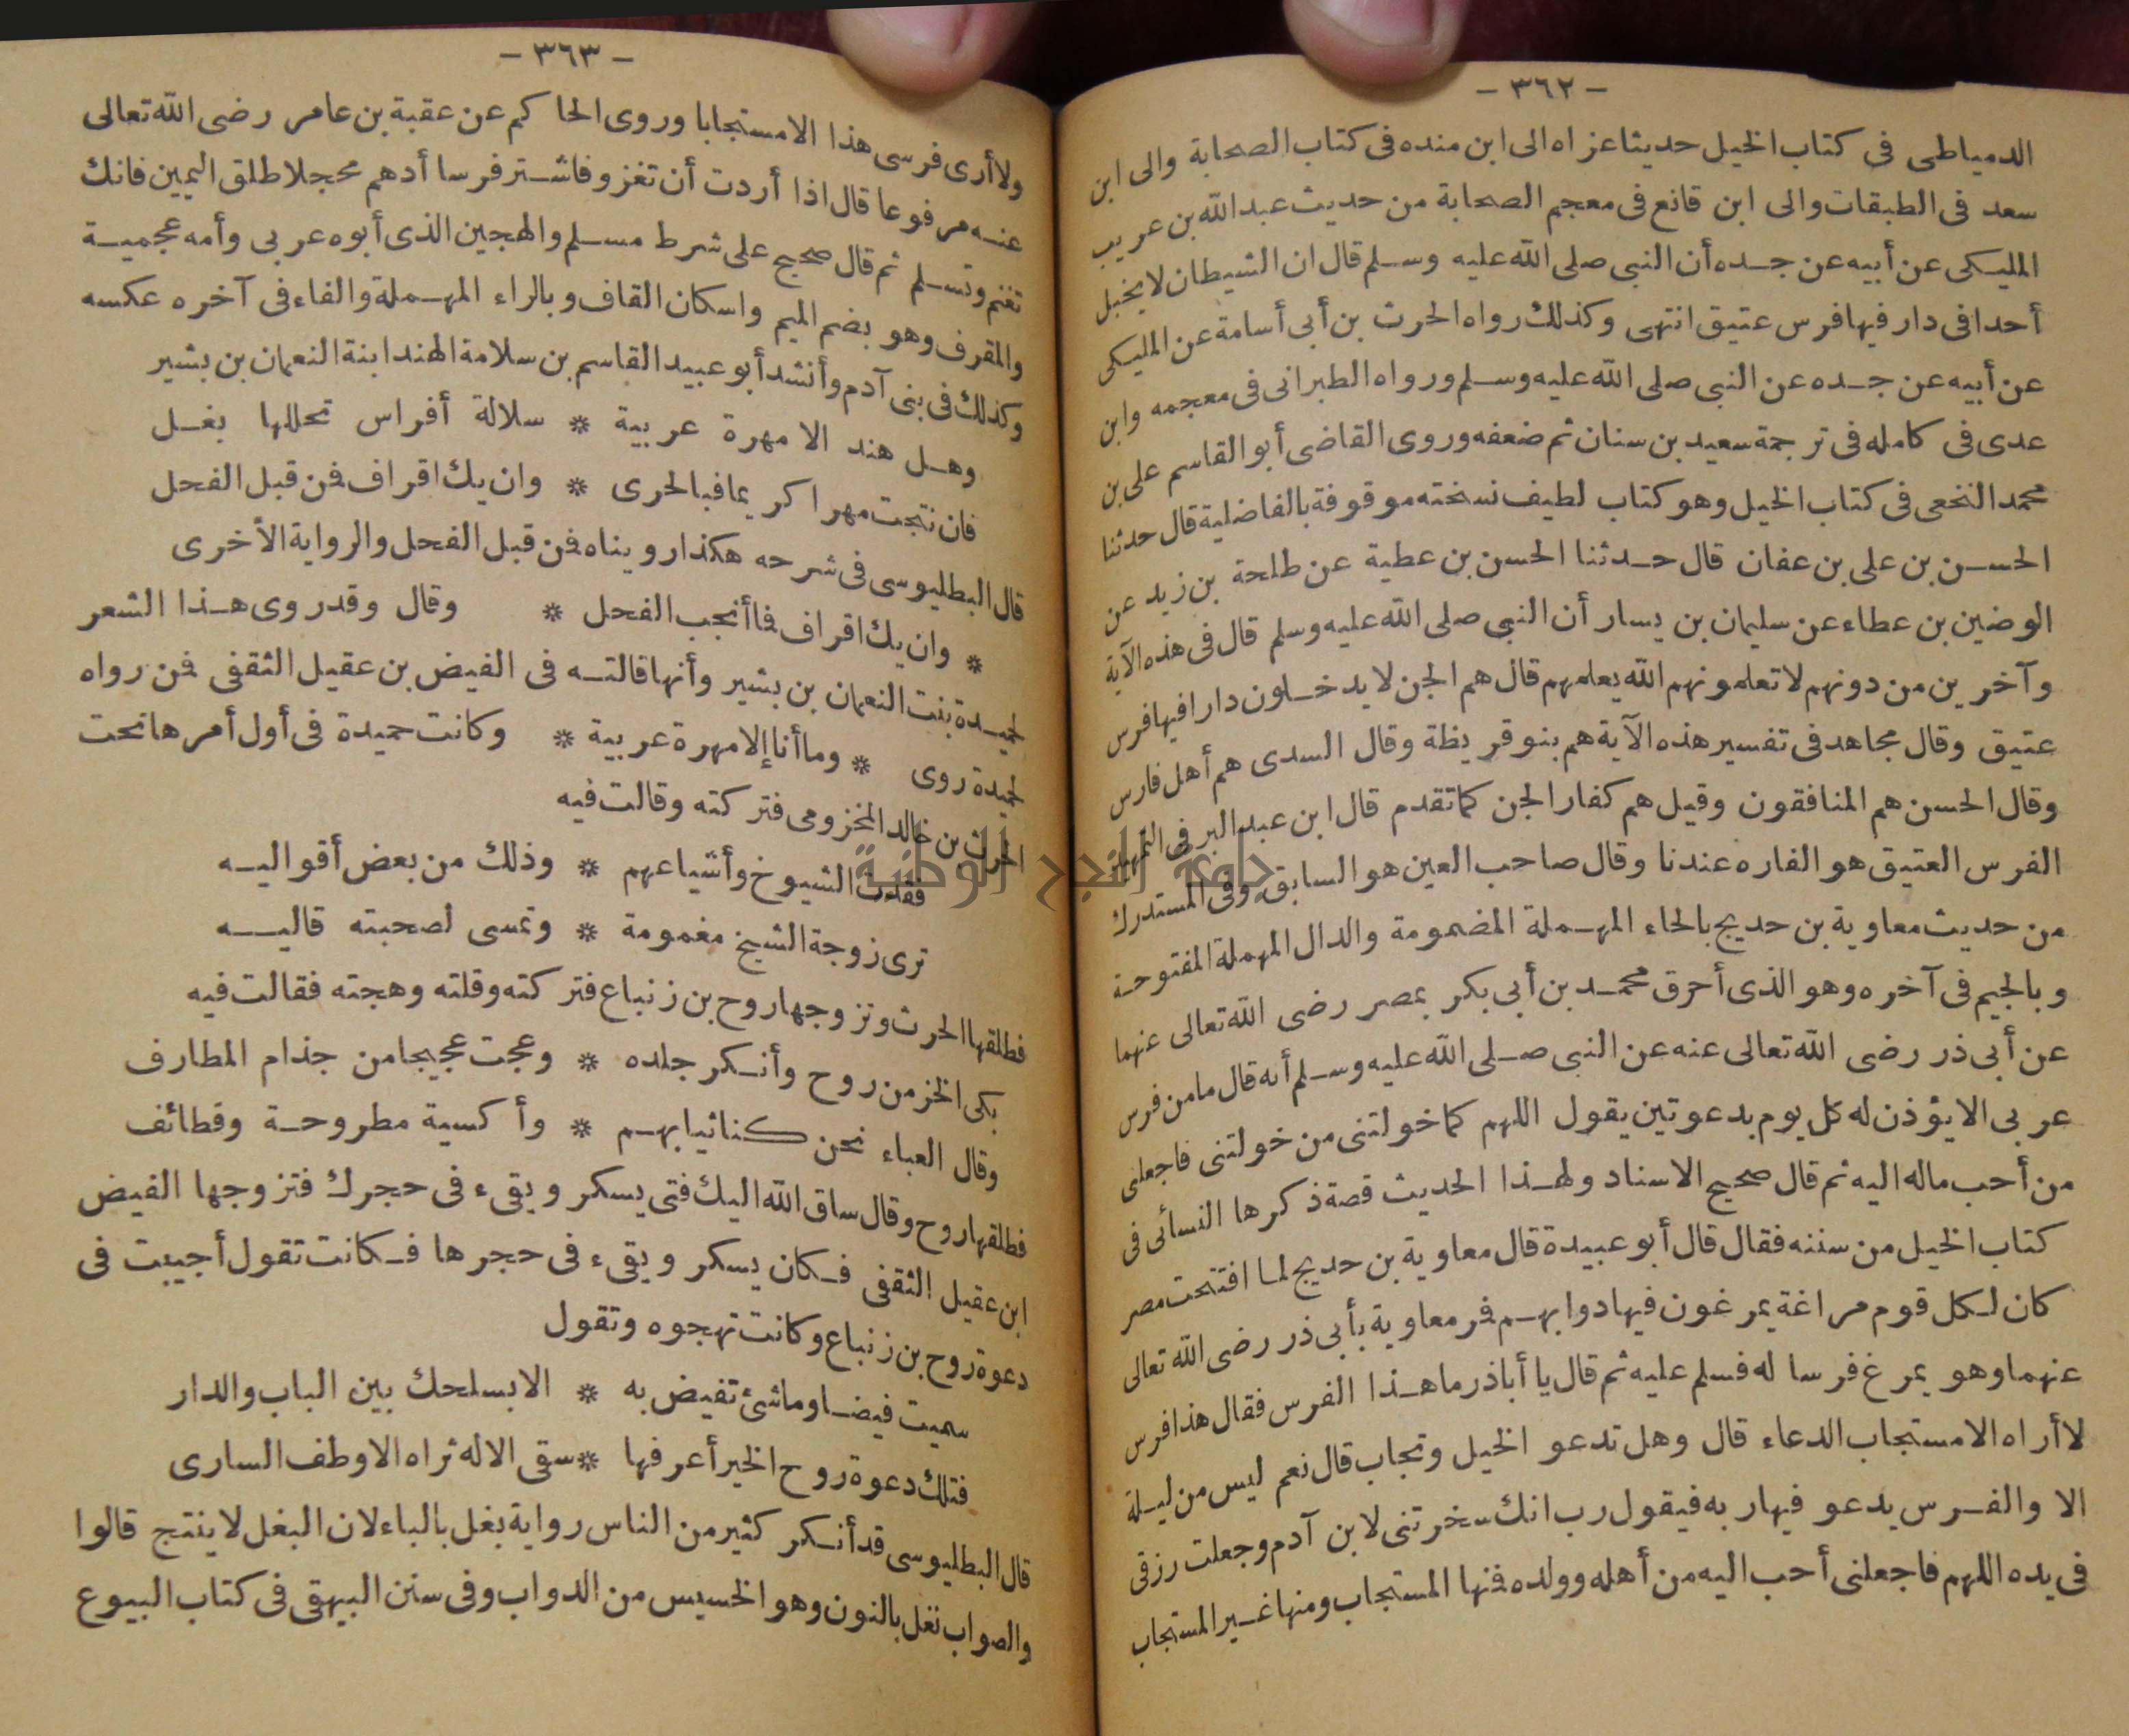 - ٣٦٢ -
الدمياطى فى كتاب الخيل حديثا عزاه الى ابن منده فى كتاب الصحابة والى ابن
سعد فى الطبقات والى ابن قانع فى معجم الصحابة من حديث عبد الله بن عريب
المليكى عن أبيه عن جده أن النبى صلى الله عليه وسلم قال ان الشيطان لا يخبل
أحدا فى دار فيها فرس عتيق انتهى وكذلك رواه الحرث بن أبى أسامة عن المليكى
عن أبيه عن جده عن النبى صلى الله عليه وسلم ورواه الطبرانى فى معجمه وابن
عدى فى كامله فى ترجمة سعيد بن سنان ثم ضعفه وروى القاضى أبو القاسم على بن
محمد النخعى فى كتاب الخيل وهو كتاب لطيف نسخته موقوفة بالفاضلية قال حدثنا
الحسن بن على بن عفان قال حدثنا الحسن بن عطية عن طلحة بن زيد عن
الوضين بن عطاء عن سليمان بن يسار أن النبى صلى الله عليه وسلم قال فى هذه الآية
وآخرين من دونهم لا تعلمونهم الله يعلمهم قال هم الجن لا يدخلون دارا فيها فرس
عتيق وقال مجاهد فى تفسير هذه الآية هم بنو قريظة وقال السدى هم أهل فارس
وقال الحسن هم المنافقون وقيل هم كفار الجن كما تقدم قال ابن عبد البر فى التمهيد
الفرس العتيق هو الفاره عندنا وقال صاحب العين هو السابق وفى المستدرك
من حديث معاوية بن حديج بالحاء المهملة المضمومة والدال المهملة المفتوحة
وبالجيم فى آخره وهو الذى أحرق محمد بن أبى بكر بمصر رضى الله تعالى عنهما
عن أبى ذر رضى الله تعالى عنه عن النبى صلى الله عليه وسلم أنه قال ما من فرس
عربى الا يؤذن له كل يوم بدعوتين يقول اللهم كما خولتنى من خولتنى فاجعلنى
من أحب ماله اليه ثم قال صحيح الاسناد ولهذا الحديث قصة ذكرها النسائى فى
كتاب الخيل من سننه فقال قال أبو عبيدة قال معاوية بن حديج لما افتتحت مصر
كان لكل قوم مراغة يمرغون فيها دوابهم فمر معاوية بأبى ذر رضى الله تعالى
عنهما وهو يمرغ فرسا له فسلم عليه ثم قال يا أباذر ما هذا الفرس فقال هذا فرس
لا أراه الا مستجاب الدعاء قال وهل تدعو الخيل وتجاب قال نعم ليس من ليلة
الا والفرس يدعو فيها ربه فيقول رب انك سخرتنى لابن آدم وجعلت رزقى
فى يده اللهم فاجعلنى أحب اليه من أهله وولده فمنها المستجاب ومنها غير المستجاب
- ٣٦٣ -
ولا أرى فرسى هذا الا مستجابا وروى الحاكم عن عقبة بن عامر رضى الله تعالى
عنه مرفوعا قال اذا أردت أن تغزو فاشتر فرسا أدهم محجلا طلق اليمين فانك
تغنم وتسلم ثم قال صحيح على شرط مسلم والهجين الذى أبوه عربى وأمه عجمية
والمقرف وهو بضم الميم واسكان القاف وبالراء المهملة والفاء فى آخره عكسه
وكذلك فى بنى آدم وأنشد أبو عبيد القاسم بن سلامة الهند ابنة النعمان بن بشير
وهل هند الا مهرة عربية * سلالة أفراس تحللها بغل
فان نتجت مهرا كريما فبالحرى * وان يك اقراف فمن قبل الفحل
قال البطليوسى فى شرحه هكذا رويناه فمن قبل الفحل والرواية الأخرى
* وان يك اقراف فما أنجب الفحل * وقال وقد روى هذا الشعر
لحميدة بنت النعمان بن بشير وأنها قالته فى الفيض بن عقيل الثقفى فمن رواه
لحميدة روى * وما أنا إلا مهرة عربية * وكانت حميدة فى أول أمرها تحت
الحرث بن خالد المخزومى فتركته وقالت فيه
فقدت الشيوخ وأشياعهم * وذلك من بعض أقواليه
ترى زوجة الشيخ مغمومة * وتمسى لصحبته قاليه
فطلقها الحرث وتزوجها روح بن زنباع فتركته وقلته وهجته فقالت فيه
بكى الخز من روح وأنكر جلده * وعجت عجيجا من جذام المطارف
وقال العباء نحن كنا ثيابهم * وأكسية مطروحة وقطائف
فطلقها روح وقال ساق الله اليك فتى يسكر ويقىء فى حجرك فتزوجها الفيض
ابن عقيل الثقفى فكان يسكر ويقىء فى حجرها فكانت تقول أجيبت فى
دعوة روح بن زنباع وكانت تهجوه وتقول
سميت فيضا وما شئ تفيض به * الا بسلحك بين الباب والدار
فتلك دعوة روح الخير أعرفها * سقى الاله ثراه الاوطف السارى
قال البطليوسى قد أنكر كثير من الناس رواية بغل بالباء لان البغل لا ينتج قالوا
والصواب نغل بالنون وهو الخسيس من الدواب وفى سنن البيهقى فى كتاب البيوع
جامعة النجاح الوطنية